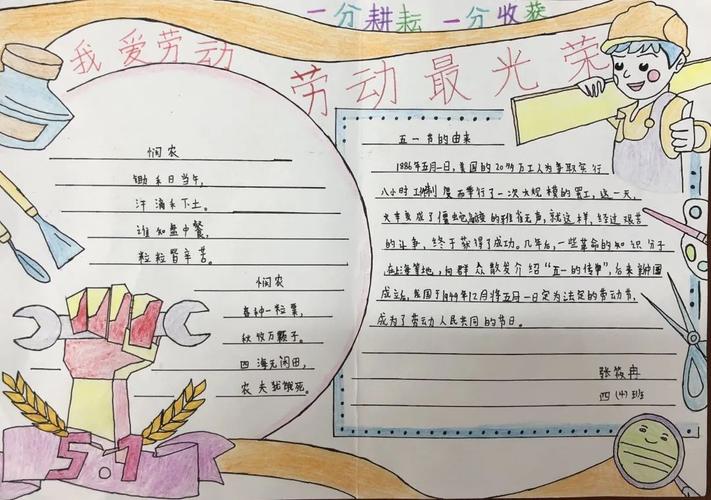 一分耕耘 一分收获
我爱劳动
劳动最光荣
悯农
锄禾日当午,
汗滴禾下土。
谁知盘中餐,
粒粒皆辛苦。
悯农
春种一粒粟,
秋收万颗子。
四海无闲田,
农夫犹饿死。
五一节的由来
1886年五月一日,美国的20多万工人为争取实行
八小时工作制 而举行了一次大规模的罢工,这一天,
的斗争,终于获得了成功。几年后,一些革命的知识分子
在上海等地,向群众散发介绍“五一的传单”,后来新中国
成立后,我国于1949年12月将五月一日定为法定的劳动节,
成为了劳动人民共同的节日。
张筱冉
四(4)班
5.1